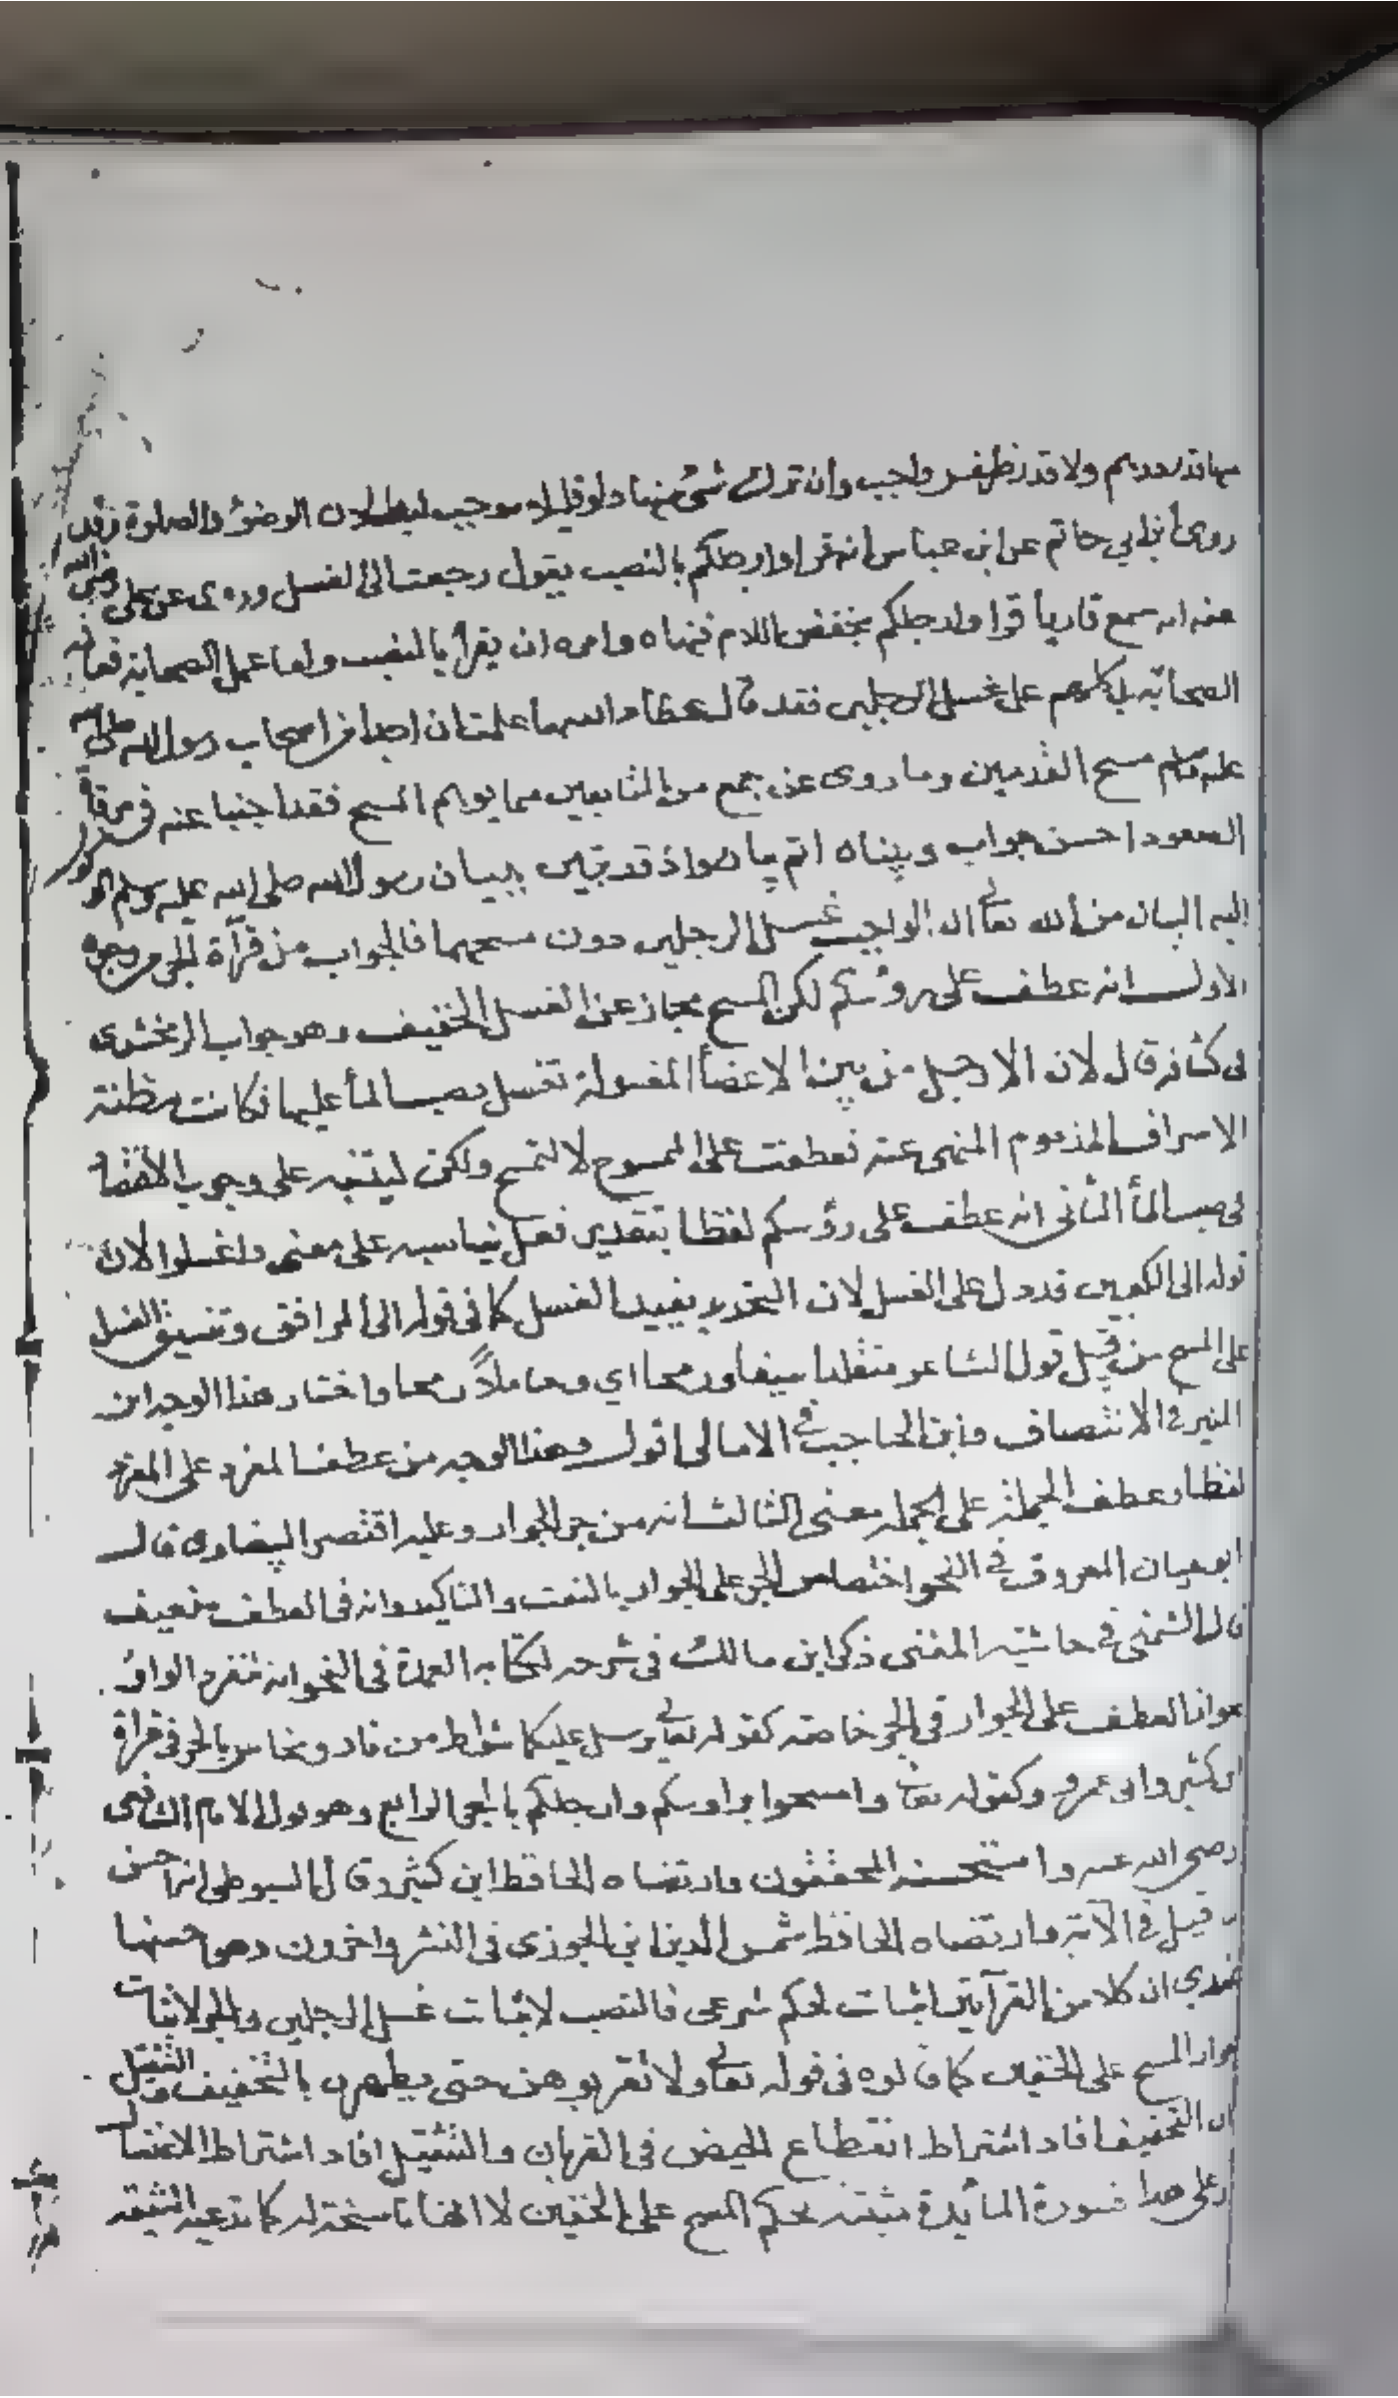 ولا قدر ظفر واجب وان ترك شئ منها الوضوء والصلوة
روى ابن ابي حاتم عن ابن عباس انه قرا وارجلكم بالنصب يقول رجعت الى الغسل وروى عن على رضى الله
عنه انه سمع قاريا قرا وارجلكم بخفض اللام فنهاه وامره ان يقرأ بالنصب واما عمل الصحابة
الصحابة بل كلهم على غسل الرجلين فقد قال عطاء والله ما علمت ان احدا من اصحاب رسول الله صلى الله
عليه وسلم مسح القدمين وما روى عن جمع من التابعين مما يوهم المسح فقد اجبنا عنه فى
السعود احسن جواب وبيناه اتم بيان واذ قد تبين ببيان رسول الله صلى الله عليه وسلم
اليه البيان من الله تعالى ان الواجب غسل الرجلين دون مسحهما فالجواب من قرأة الجر من وجوه
الاول انه عطف على رؤسكم لكن المسح مجاز عن الغسل الخفيف وهو جواب الزمخشرى
فى كشافه قال لان الارجل من بين الاعضأ المغسولة تغسل بصب المأ عليها فكانت مظنة
الاسراف المذموم المنهى عنه فعطفت على الممسوح لا لتمسح ولكن ليتنبه على وجوب الاقتصاد
فى صب المأ الثانى انه عطف على رؤسكم لفظا بتقدير فعل يناسبه على معنى واغسلوا لان
قوله الى الكعبين قد دل على الغسل لان التحديد يفيد الغسل كما فى قوله الى المرافق وتنسيق الغسل
على المسح من قبيل قول الشاعر متقلدا سيفا ورمحا اي وحاملاً رمحا واختار هذا الوجه ابن
المنير فى الانتصاف وابن الحاجب فى الامالى اقول وهذا الوجه من عطف المفرد على المفرد
لفظا وعطف الجملة على الجملة معنى الثالث انه من جر الجوار وعليه اقتصر البيضاوى قال
ابو حيان المعروف فى النحو اختصاص الجر على الجوار بالنعت والتاكيد وانه فى العطف ضعيف
قال الشمنى فى حاشية المغنى ذكر ابن مالك فى شرحه لكتابه العمدة فى النحو انه تنفرد الواو
بجواز العطف على الجوار فى الجر خاصة كقوله تعالى يرسل عليكما شواظ من نار ونحاس بالجر فى قراة
ابن كثير وابى عمرو وكقوله تعالى وامسحوا برؤسكم وارجلكم بالجر الرابع وهو قول الامام الشافعى
رضى الله عنه واستحسنه المحققون وارتضاه الحافظ ابن كثير وقال السيوطى انه احسن
ما قيل فى الآية وارتضاه الحافظ شمس الدين ابن الجوزى فى النشر واخرون وهو احسنها
عندي ان كلا من القرآتين اثبات لحكم شرعى فالنصب لاثبات غسل الرجلين والجر لاثبات
جواز المسح على الخفين كما قالوه فى قوله تعالى ولا تقربوهن حتى يطهرن بالتخفيف والتثقيل
ان التخفيف افاد اشتراط انقطاع الحيض فى القربان والتثقيل افاد اشتراط الاغتسال
وعلى هذا فسورة المائدة مثبتة بحكم المسح على الخفين لا انها ناسخة له كما تدعيه الشيعة